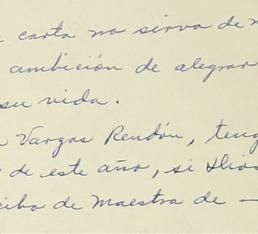 carta no sirva de
ambición de alegrar
su vida.
Vargas Rendón, teng
de este año, si Dios
cibo de Maestra de —